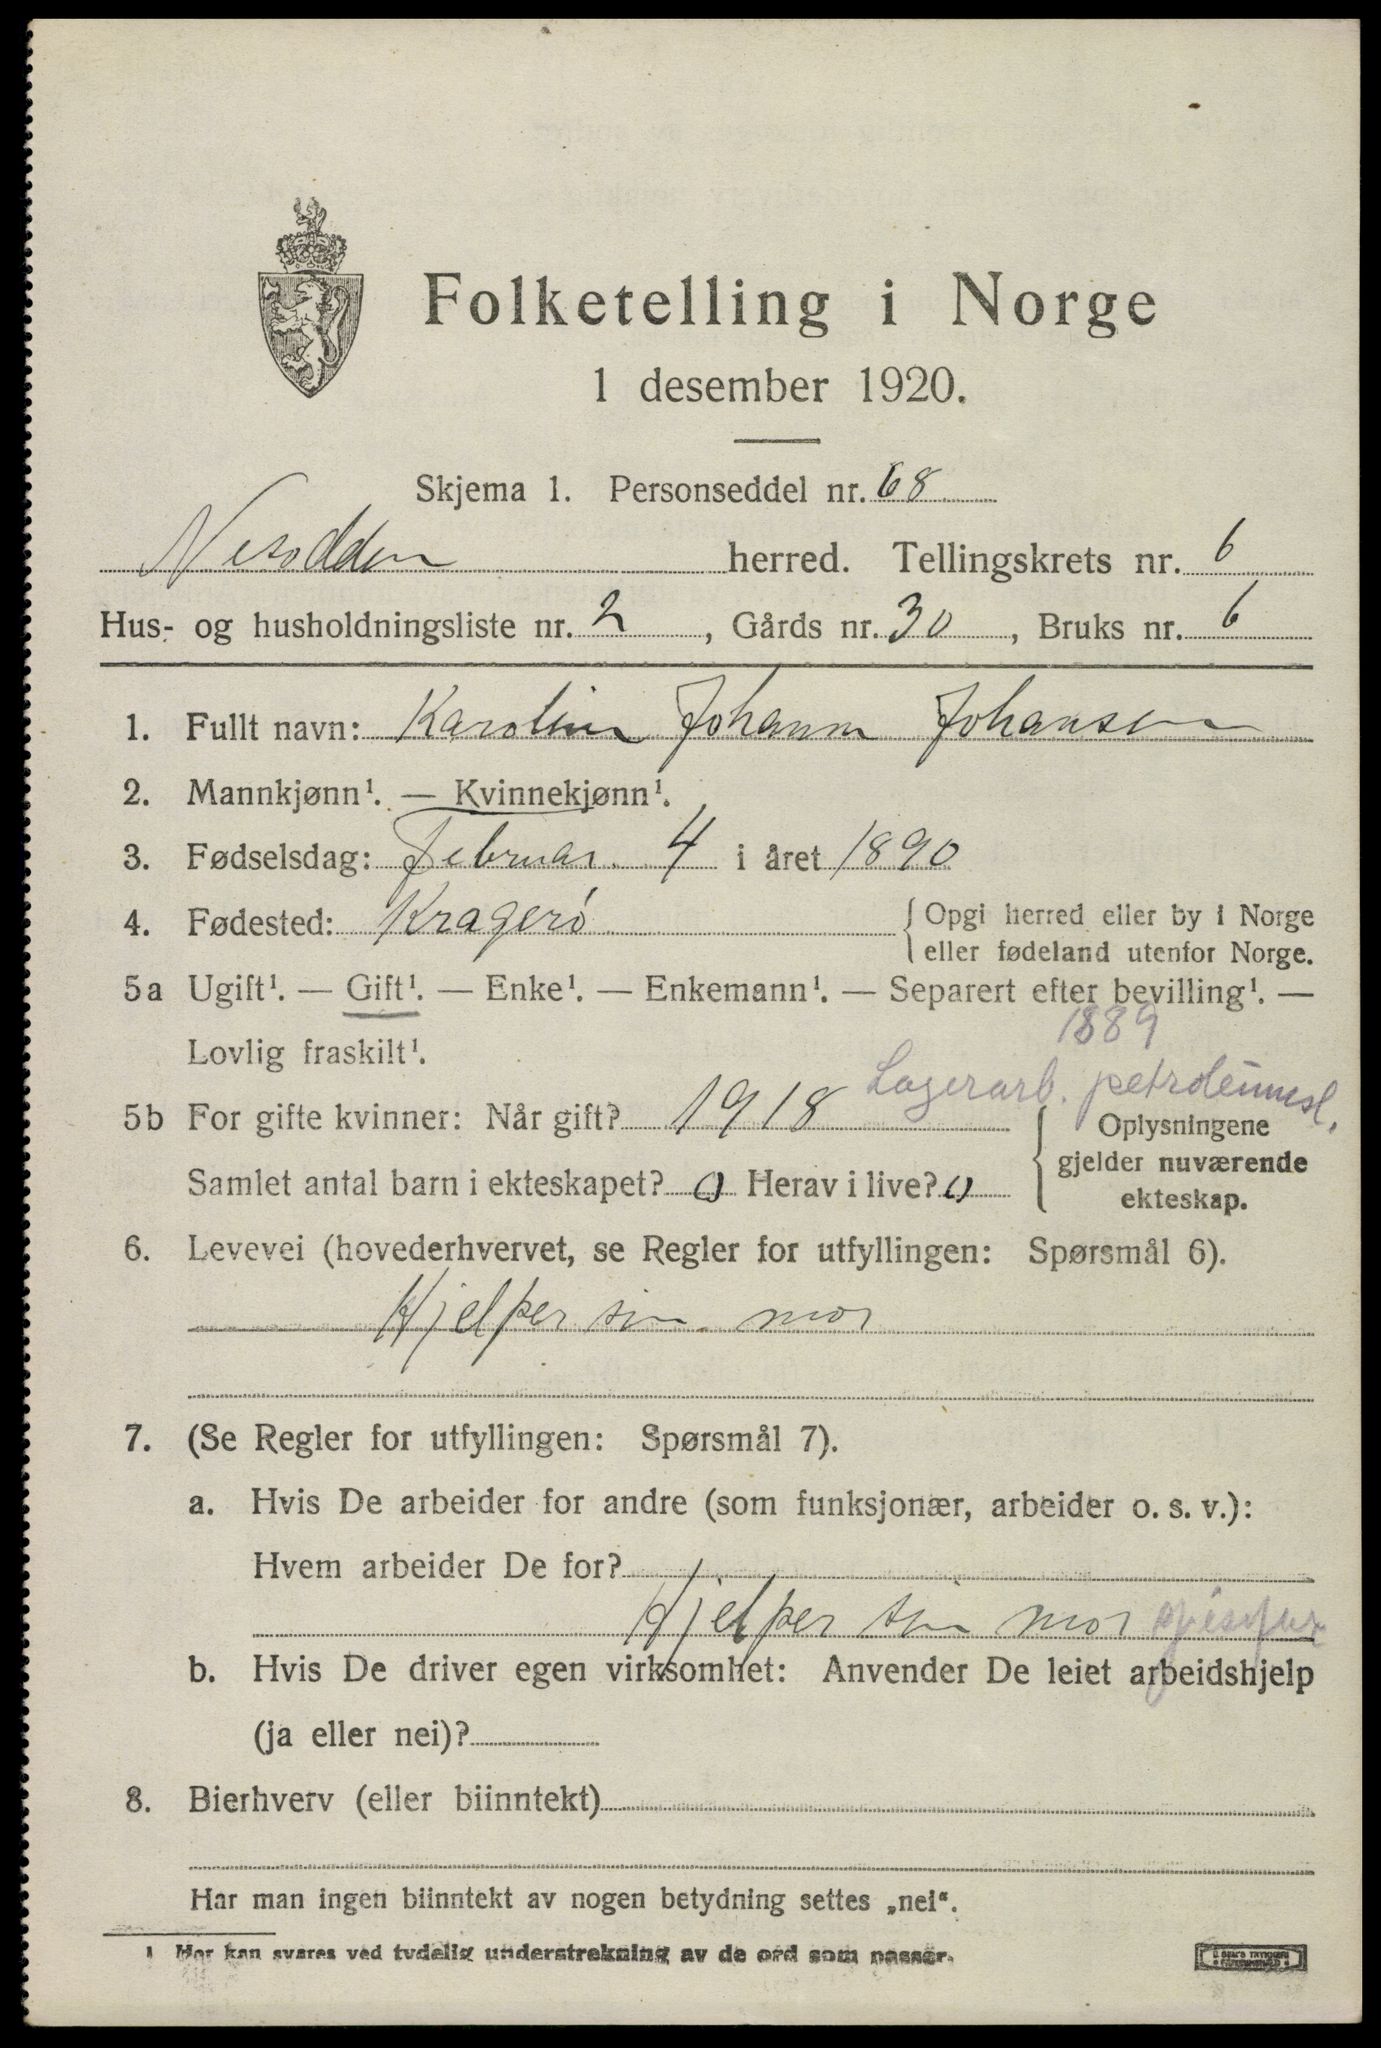 Folketelling i Norge
1 desember 1920.
Skjema 1. Personseddel nr. 68
Nesodden herred. Tellingskrets nr. 6
Hus- og husholdningsliste nr. 2, Gårds nr. 30, Bruks nr. 6
1. Fullt navn: Karoline Johanne Johansen
2. Mannkjønn¹. — Kvinnekjønn¹.
3. Fødselsdag: Februar 4 i året 1890
4. Fødested: Kragerö { Opgi herred eller by i Norge
eller fødeland utenfor Norge.
5a Ugift¹. — Gift¹. — Enke¹. — Enkemann¹. — Separert efter bevilling¹. —
Lovlig fraskilt¹.
1889
Lagerarb. petroleumsl.
5b For gifte kvinner: Når gift? 1918 { Oplysningene
gjelder nuværende
Samlet antal barn i ekteskapet? 0 Herav i live? 0
ekteskap.
6. Levevei (hovederhvervet, se Regler for utfyllingen: Spørsmål 6).
Hjelper sin mor
7. (Se Regler for utfyllingen: Spørsmål 7).
a. Hvis De arbeider for andre (som funksjonær, arbeider o. s. v.):
Hvem arbeider De for?
Hjelper sin mor
b. Hvis De driver egen virksomhet: Anvender De leiet arbeidshjelp
(ja eller nei)?
8. Bierhverv (eller biinntekt)
Har man ingen biinntekt av nogen betydning settes „nei“.
1 Her kan svares ved tydelig understrekning av de ord som passer.